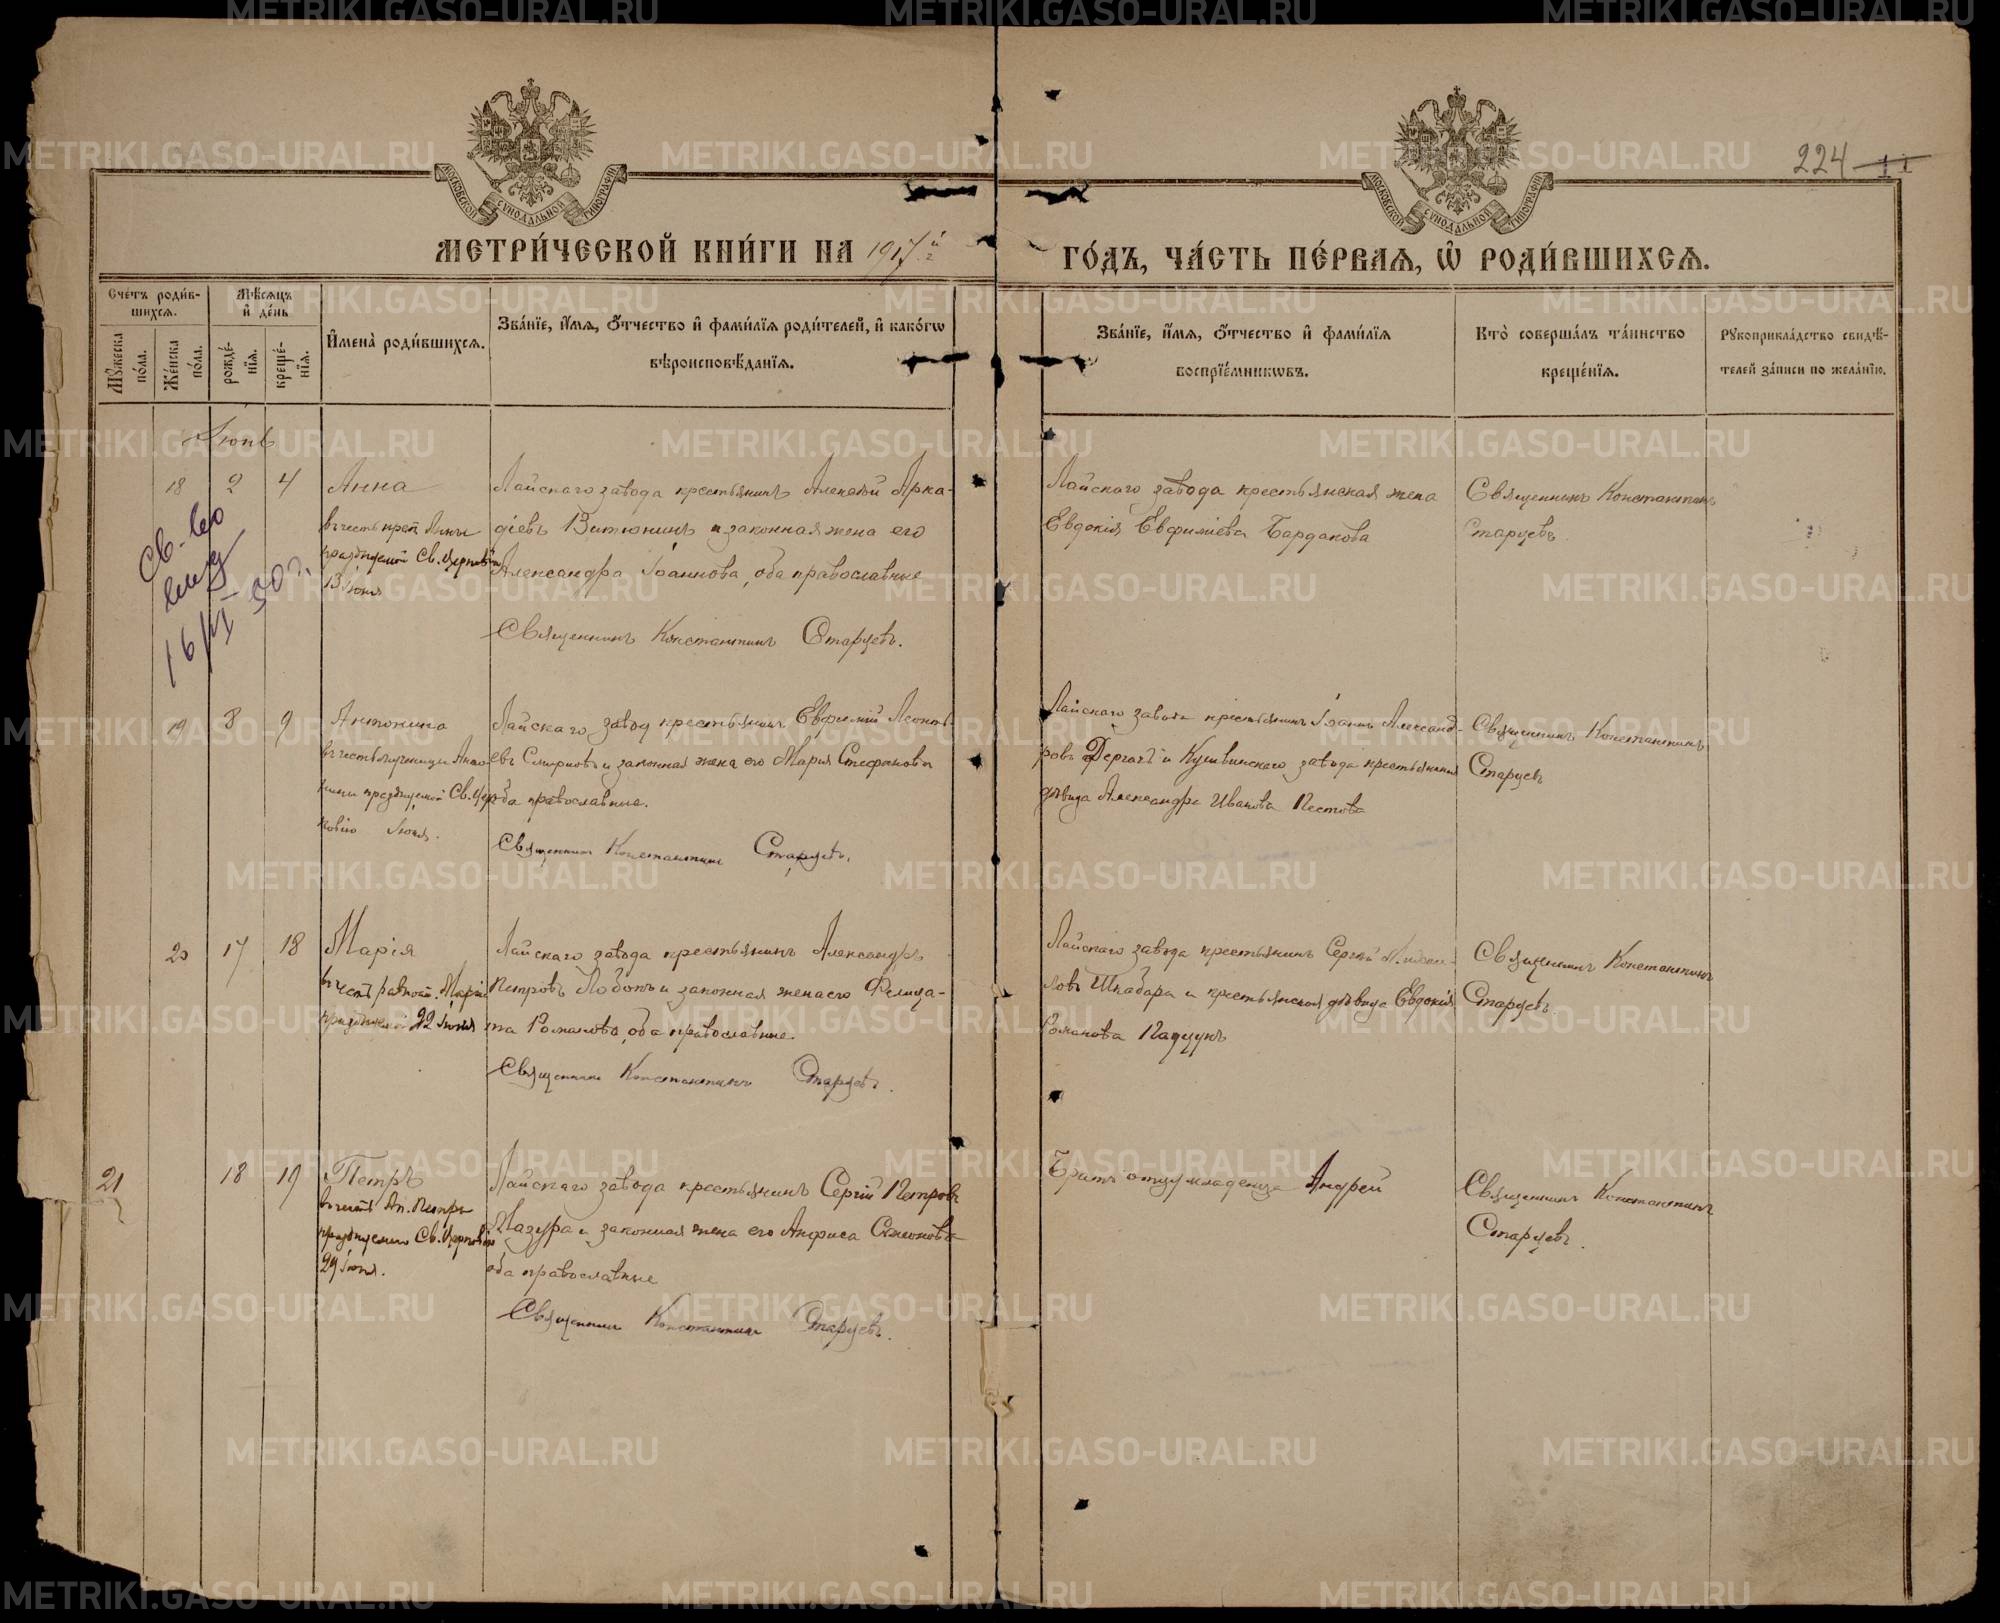 224
МОСКОВСКОЙ СѴНОДАЛЬНОЙ ТИПОГРАФІИ
МОСКОВСКОЙ СѴНОДАЛЬНОЙ ТИПОГРАФІИ
МЕТРИ́ЧЕСКОЙ КНИ́ГИ НА 1917 й г
ГО́ДЪ, ЧА́СТЬ ПЕ́РВАѦ, Ѡ҆ РОДИ́ВШИХСѦ.
Сче́тъ роди́в-
шихсѧ.
Мꙋ́жеска по́ла.
Же́нска по́ла.
Мѣ́сѧцъ
и҆ де́нь
рожде́-
нїѧ.
креще́-
нїѧ.
И҆мена̀ роди́вшихсѧ.
Зва́нїе, и҆́мѧ, ѻ҆́тчество и҆ фами́лїѧ роди́телей, и҆ како́гѡ
вѣроисповѣ́данїѧ.
Зва́нїе, и҆́мѧ, ѻ҆́тчество и҆ фами́лїѧ
воспрїе́мникѡвъ.
Кто̀ соверша́лъ та́инство
креще́нїѧ.
Рꙋкоприкла́дство свидѣ́-
телей за́писи по жела́нїю.
Іюнь
18 2 4
Анна
въ честь преп. Анны
празднуемой Св. Церковію
13 Іюня
Лайскаго завода крестьянинъ Алексѣй Арка-
діевъ Витюнинъ и законная жена его
Александра Іоаннова, оба православные
Священникъ Константинъ Старцевъ.
Лайскаго завода крестьянская жена
Евдокія Евфиміева Бардакова
Священникъ Константинъ
Старцевъ.
Св-во
16/VI 50 г.
19 8 9
Антонина
въ честь мученицы Анто-
нины празднуемой Св. Цер-
ковію Іюня.
Лайскаго завода крестьянинъ Евфимій Леонть-
евъ Смирновъ и законная жена его Марія Стефанова
оба православные.
Священникъ Константинъ Старцевъ.
Лайскаго завода крестьянинъ Іоаннъ Александ-
ровъ Дергачъ и Кушвинскаго завода крестьянская
дѣвица Александра Иванова Пестова
Священникъ Константинъ
Старцевъ
20 17 18
Марія
въ честь равноап. Маріи
празднуемой 22 Іюля
Лайскаго завода крестьянинъ Александръ
Петровъ Лобовъ и законная жена его Фелица-
та Романова, оба православные.
Священникъ Константинъ Старцевъ.
Лайскаго завода крестьянинъ Сергій
ловъ Шкабара и крестьянская дѣвица Евдокія
Романова Падчукъ
Священникъ Константинъ
Старцевъ.
21 18 19
Петръ
въ честь Ап. Петра
празднуемаго Св. Церковію
29 Іюня.
Лайскаго завода крестьянинъ Сергій Петровъ
Мазура и законная жена его Анфиса Симонова
оба православные
Священникъ Константинъ Старцевъ.
Братъ отцу младенца Андрей
Священникъ Константинъ
Старцевъ.
METRIKI.GASO-URAL.RU